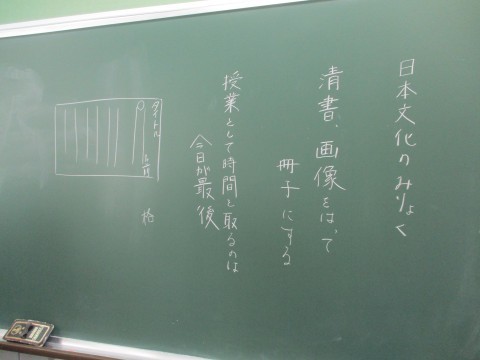 日本文化のみりょく
清書、画像をはって
冊子にする
授業として時間と取るのは
今日が最後
タイトル
名前